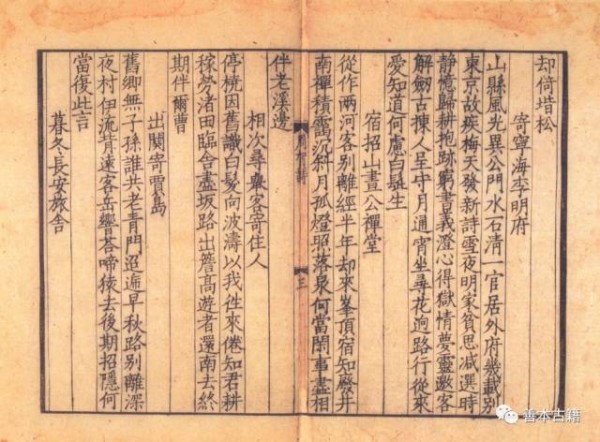 却倚堦松
寄寧海李明府
山縣風光異公門水石清一官居外府幾載別
東京故疾梅天發新詩雪夜明家貧思減選時
静憶歸耕抱跡窮書義澄心得獄情夢靈邀客
解劒古揀人呈守月通宵坐尋花迥路行從來
愛知道何慮白髭生
宿招山晝公禪堂
從作兩河客別離經半年却來峯頂宿知廢井
南禪積靄沉斜月孤燈照落泉何當閑事盡相
伴老溪邊
周賀詩
三
相次尋舉客寄住人
停橈因舊識白髮向波濤以我徃來倦知君耕
稼勞渚田臨舍盡坂路出簷高遊者還南去終
期伴爾曹
出關寄賈島
舊鄉無子孫誰共老青門迢遞早秋路別離深
夜村伊流背遠客岳響荅啼猿去後期招隱何
當復此言
暮冬長安旅舍
善本古籍